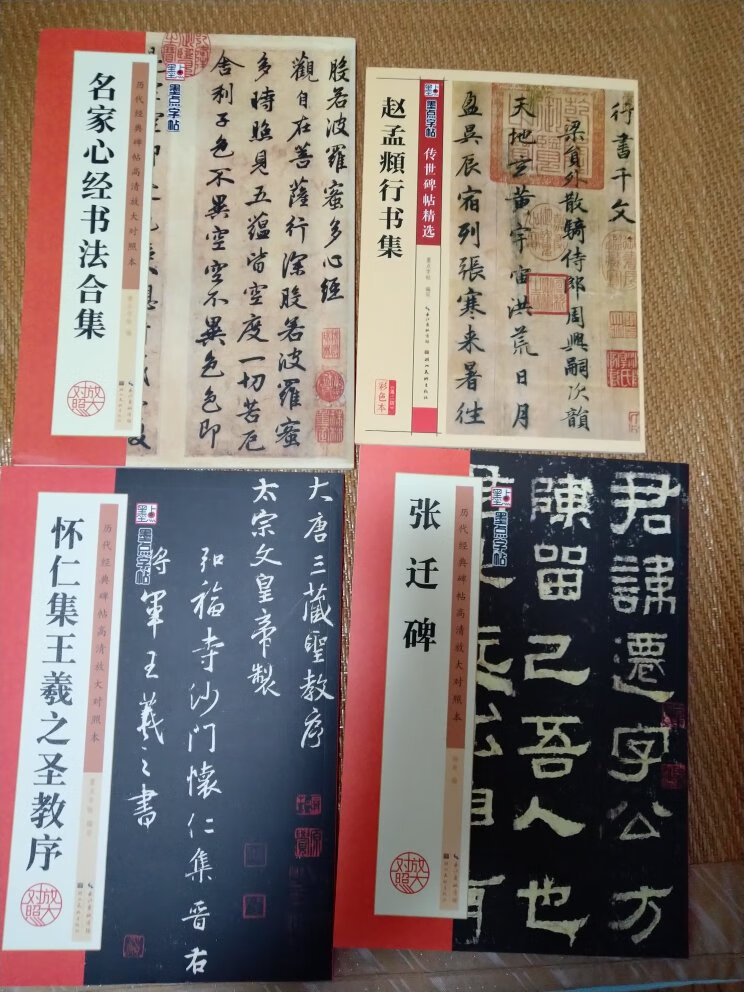 名家心经书法合集
历代经典碑帖高清放大对照本
墨点字帖
墨点字帖 编
放大对照
般若波羅蜜多心經
觀自在菩薩行深般若波羅蜜
多時照見五蘊皆空度一切苦厄
舍利子色不異空空不異色色即
赵孟頫行书集
墨点字帖
传世碑帖精选
墨点字帖 编写
彩色本
行書千文
梁員外散騎侍郎周興嗣次韻
天地玄黃宇宙洪荒日月
盈昃辰宿列張寒来暑往
怀仁集王羲之圣教序
历代经典碑帖高清放大对照本
墨点字帖
放大对照
大唐三藏聖教序
太宗文皇帝製
弘福寺沙門懷仁集晉右
將軍王羲之書
张迁碑
历代经典碑帖高清放大对照本
墨点字帖
放大对照
君諱遷字公方
陳留己吾人也